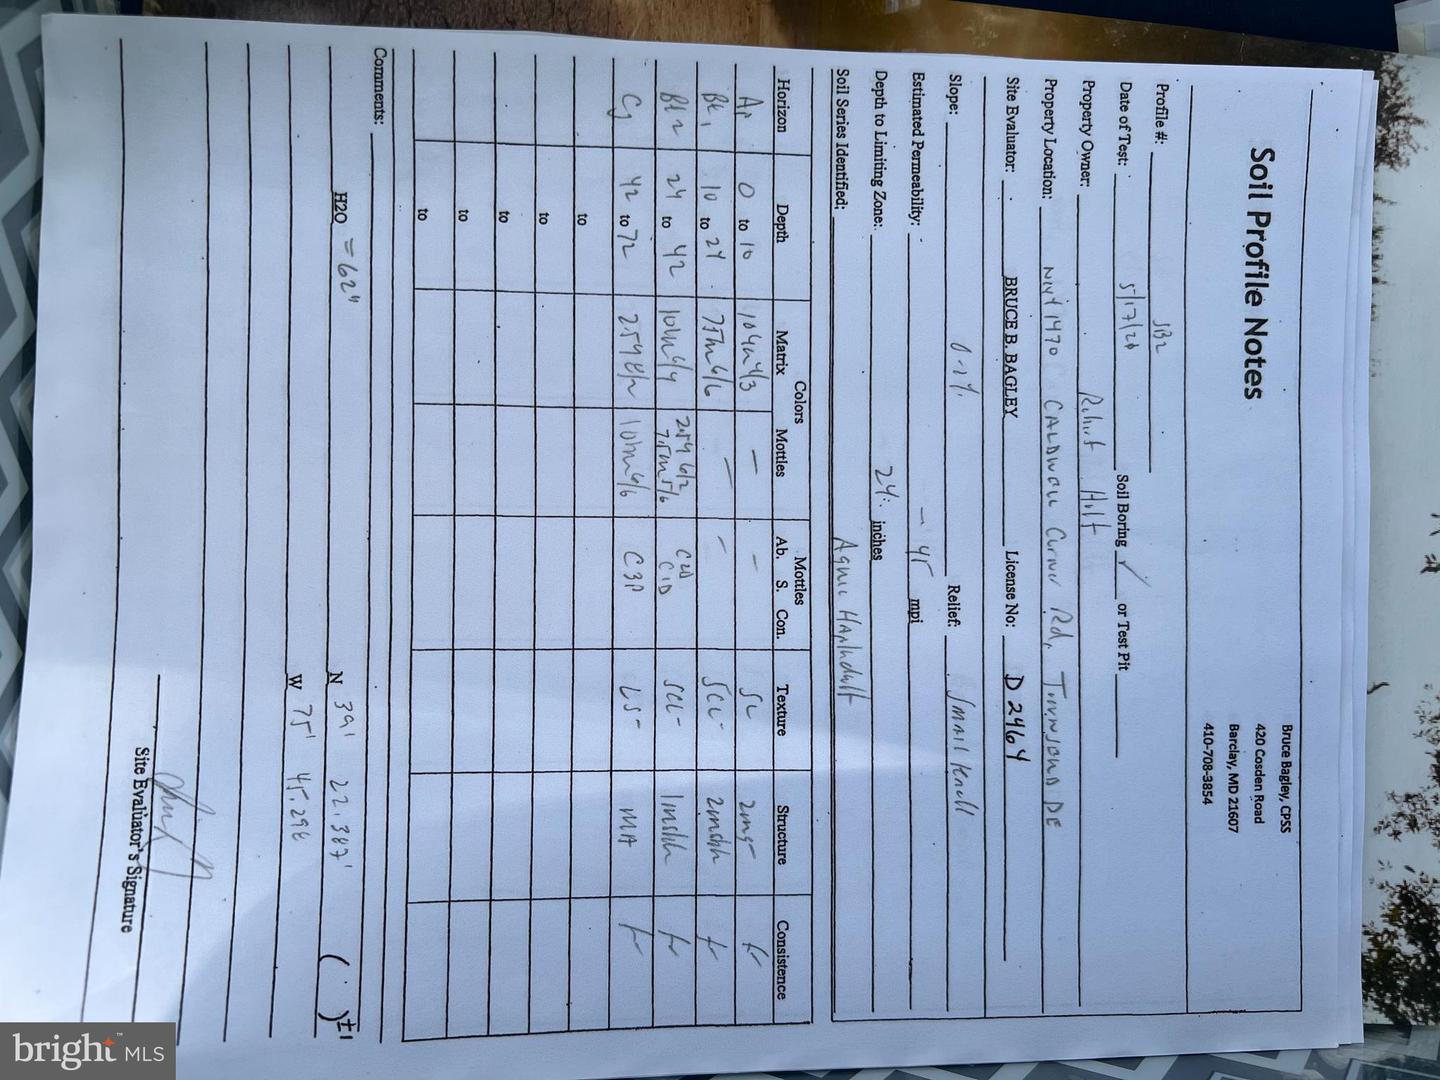 Soil Profile Notes
Bruce Bagley, CPSS
420 Cosden Road
Barclay, MD 21607
410-708-3854
Profile #: SB2
Date of Test: 5/17/2 Soil Boring ✓ or Test Pit
Property Owner: Robert Holt
Property Location: Next 1470 CALDWELL Corner Rd, TOWNSEND DE
Site Evaluator: BRUCE B. BAGLEY License No: D 2464
Slope: 0-1% Relief: Small knoll
Estimated Permeability: 45 mpi
Depth to Limiting Zone: 24 inches
Soil Series Identified: Aquic Hapludult
Colors Mottles
Horizon Depth Matrix Mottles Ab. S. Con. Texture Structure Consistence
Ap 0 to 10 10YR 4/3 — — SL fr
Bt1 10 to 24 7.5YR 6/6 — — SCL- 2msbk fr
Bt2 24 to 42 10YR 6/4 2.5Y 6/2 7.5YR 5/6 C2D C1D SCL- 1msbk fr
Cg 42 to 72 2.5Y 8/2 10YR 6/6 C3P LS- MA fr
to
to
to
to
to
Comments:
H2O = 62" N 39° 22.387' ( ) ±1
W 75° 45.298
Site Evaluator's Signature
bright MLS